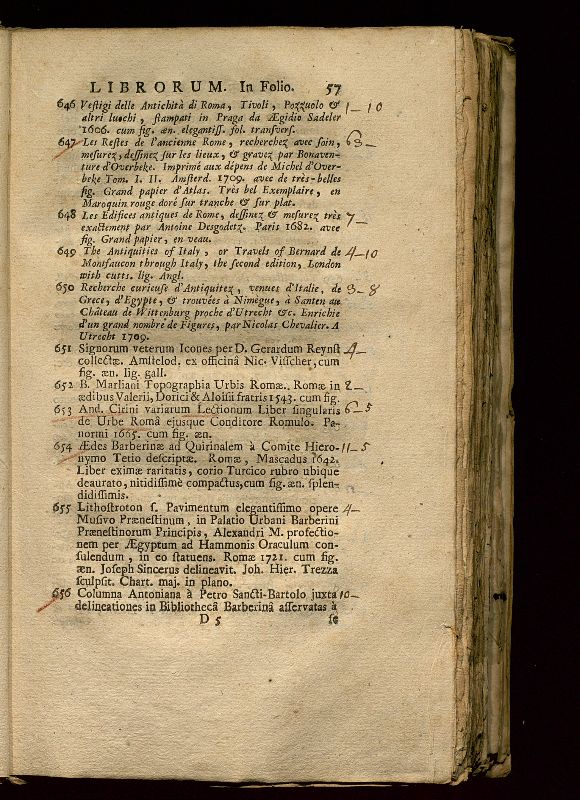 LIBRORUM. In Folio. 57
646 Vestigi delle Antichità di Roma, Tivoli, Pozzuolo & 1-10
altri luochi, stampati in Praga da Ægidio Sadeler
1606. cum fig. æn. elegantiss. fol. transvers.
647 Les Restes de l'ancienne Rome, recherchez avec soin, 63-
mesurez, dessinez sur les lieux, & gravez par Bonaven-
ture d'Overbeke. Imprimé aux dépens de Michel d'Over-
beke Tom. I. II. Amsterd. 1709. avec de très-belles
fig. Grand papier d'Atlas. Très bel Exemplaire, en
Maroquin rouge doré sur tranche & sur plat.
648 Les Edifices antiques de Rome, dessinez & mesurez très 7-
exactement par Antoine Desgodetz. Paris 1682. avec
fig. Grand papier, en veau.
649 The Antiquities of Italy, or Travels of Bernard de 4-10
Montfaucon through Italy, the second edition, London
with cutts. lig. Angl.
650 Recherche curieuse d'Antiquitez, venues d'Italie, de 3-8
Grece, d'Egypte, & trouvées à Nimègue, à Santen au
Château de Wittenburg proche d'Utrecht &c. Enrichie
d'un grand nombre de Figures, par Nicolas Chevalier. A
Utrecht 1709.
651 Signorum veterum Icones per D. Gerardum Reynst 4-
collectæ. Amstelod. ex officinâ Nic. Visscher, cum
fig. æn. lig. gall.
652 B. Marliani Topographia Urbis Romæ. Romæ in 2-
ædibus Valerii, Dorici & Aloisii fratris 1543. cum fig.
653 And. Cirini variarum Lectionum Liber singularis 6-5
de Urbe Romà ejusque Conditore Romulo. Pa-
normi 1665. cum fig. æn.
654 Ædes Barberinæ ad Quirinalem à Comite Hiero- 11-5
nymo Tetio descriptæ. Romæ, Mascadus 1642.
Liber eximæ raritatis, corio Turcico rubro ubique
deaurato, nitidissimè compactus, cum fig. æn. splen-
didissimis.
655 Lithostroton s. Pavimentum elegantissimo opere 4-
Musivo Prænestinum, in Palatio Urbani Barberini
Prænestinorum Principis, Alexandri M. profectio-
nem per Ægyptum ad Hammonis Oraculum con-
sulendum, in eo statuens. Romæ 1721. cum fig.
æn. Joseph Sincerus delineavit. Joh. Hier. Trezza
sculpsit. Chart. maj. in plano.
656 Columna Antoniana à Petro Sancti-Bartolo juxta 10-
delineationes in Bibliothecâ Barberinâ asservatas à
D 5 se